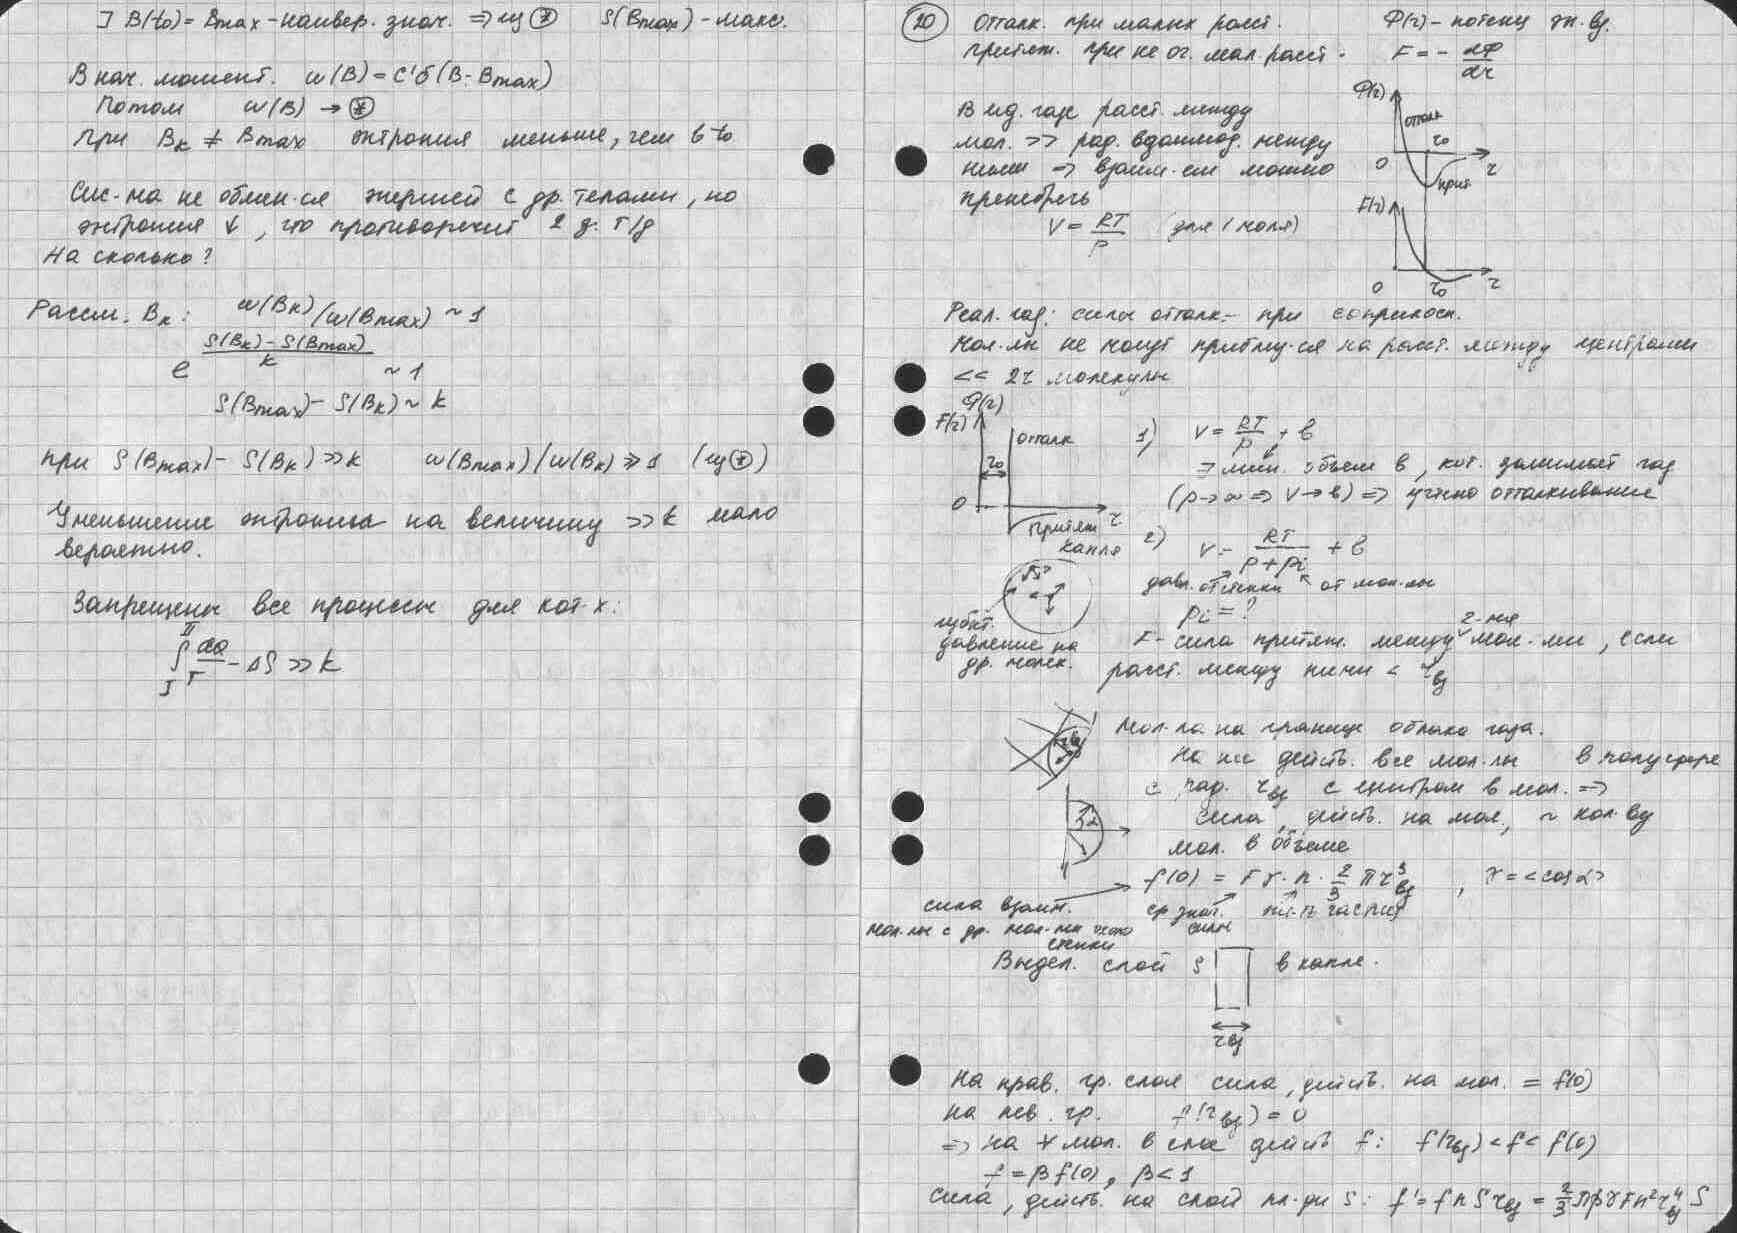 ] B(t₀) = Bmax – наивер. знач. ⇒ из ⊛ S(Bmax) – макс.
В нач. момент. w(B) = C'δ(B-Bmax)
Потом w(B) → ⊛
при Bк ≠ Bmax энтропия меньше, чем в t₀
Сис-ма не обмен-ся энергией с др. телами, но
энтропия ↓, что противоречит 2 з. т/д
На сколько?
Рассм. Bк: w(Bк)/w(Bmax) ~ 1
e^((S(Bк) - S(Bmax))/k) ~ 1
S(Bmax) - S(Bк) ~ k
при S(Bmax) - S(Bк) ≫ k w(Bmax)/w(Bк) ≫ 1 (из ⊛)
Уменьшение энтропии на величину ≫ k мало
вероятно.
Запрещены все процессы для кот-х:
∫ᵢᴵᴵ dQ/T - ΔS ≫ k
20 Отталк. при малых расст. Φ(r) – потенц эн. вз.
притяж. при не оч. мал. расст. F = - dΦ/dr
В ид. газе расст. между
мол. ≫ рад. взаимод. между
ними ⇒ взаим-ем можно
пренебречь
V = RT/p (для 1 моля)
Φ(r)
отталк
r₀
0 r
прит.
F(r)
0 r₀ r
Реал. газ: силы отталк – при соприкосн.
мол-лы не могут приблиз-ся на расст. между центрами
≪ 2r молекулы
Φ(r)
F(r)
отталк
r₀
0 r
притяж
1) V = RT/p + b
] мин. объем b, кот. занимает газ
(p→∞ ⇒ V→b) ⇒ учтено отталкивание
капля
2) V = RT/(p+pi) + b
давл. от стенки от мол-лы
pi = ?
избыт.
давление на
др. молек.
F – сила притяж. между 2-мя мол-ми, если
расст. между ними < rвз
Мол-ла на границе облака газа.
На нее действ. все мол-лы в полусфере
с рад. rвз с центром в мол. ⇒
сила, действ. на мол, ~ кол-ву
мол. в объеме
α
f(0) = Fγ·n·2/3 πr³вз, γ = <cosα>
сила взаим.
мол-лы с др. мол-ми
стенки
ср знач.
силы
частиц
Выдел. слой S в капле.
rвз
На прав. гр. слоя сила, действ. на мол. = f(0)
на лев. гр. f(rвз) = 0
⇒ на ∀ мол. в слое действ f: f(rвз) < f < f(0)
f = βf(0), β < 1
Сила, действ. на слой пл-ди S: f' = f n S rвз = 2/3 πβγFn²r⁴вз S